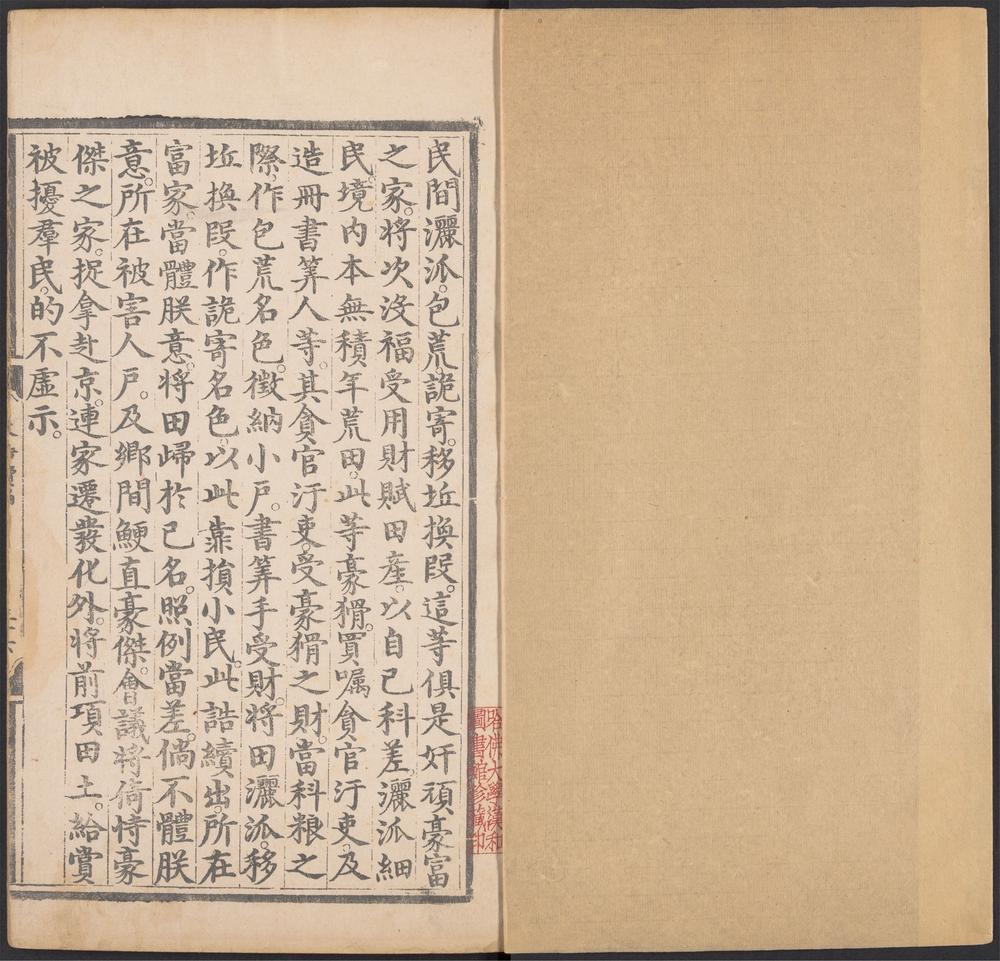 民間灑派。包荒。詭寄。移坵換段。這等俱是奸頑豪富
之家。將次沒福受用財賦田產。以自己科差。灑派細
民。境內本無積年荒田。此等豪猾。買囑貪官汙吏。及
造冊書筭人等。其貪官汙吏。受豪猾之財。當科粮之
際。作包荒名色。徵納小戶。書筭手受財。將田灑派。移
坵換段。作詭寄名色。以此靠損小民。此誥續出。所在
富家。當體朕意。將田歸於己名。照例當差。倘不體朕
意。所在被害人戶。及鄉間鯁直豪傑。會議將倚恃豪
傑之家。捉拿赴京。連家遷發化外。將前項田土。給賞
被擾羣民。的不虛示。
哈佛大學漢和
圖書館珍藏印